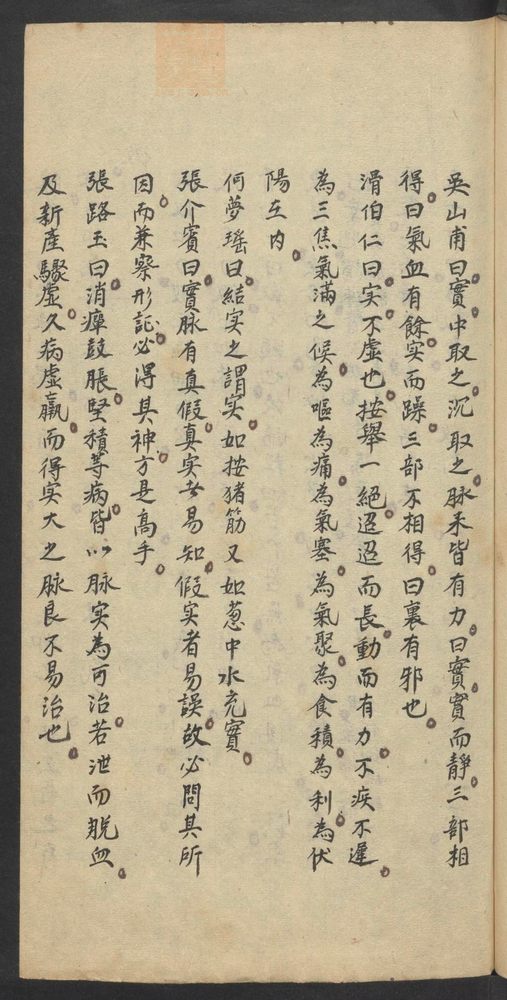 吴山甫曰實中取之沉取之脉來皆有力曰實實而靜三部相
得曰氣血有餘实而躁三部不相得曰裏有邪也
滑伯仁曰实不虛也按舉一絕迢迢而長動而有力不疾不遲
為三焦氣滿之候為嘔為痛為氣塞為氣聚為食積為利為伏
陽在内
何夢瑤曰結实之謂实如按猪筋又如葱中水充實
張介賓曰實脉有真假真实者易知假实者易誤故必問其所
因而兼察形証必得其神方是高手
張路玉曰消癉鼓脹堅積等病皆以脉实為可治若泄而脱血
及新產驟虛久病虛羸而得实大之脉良不易治也